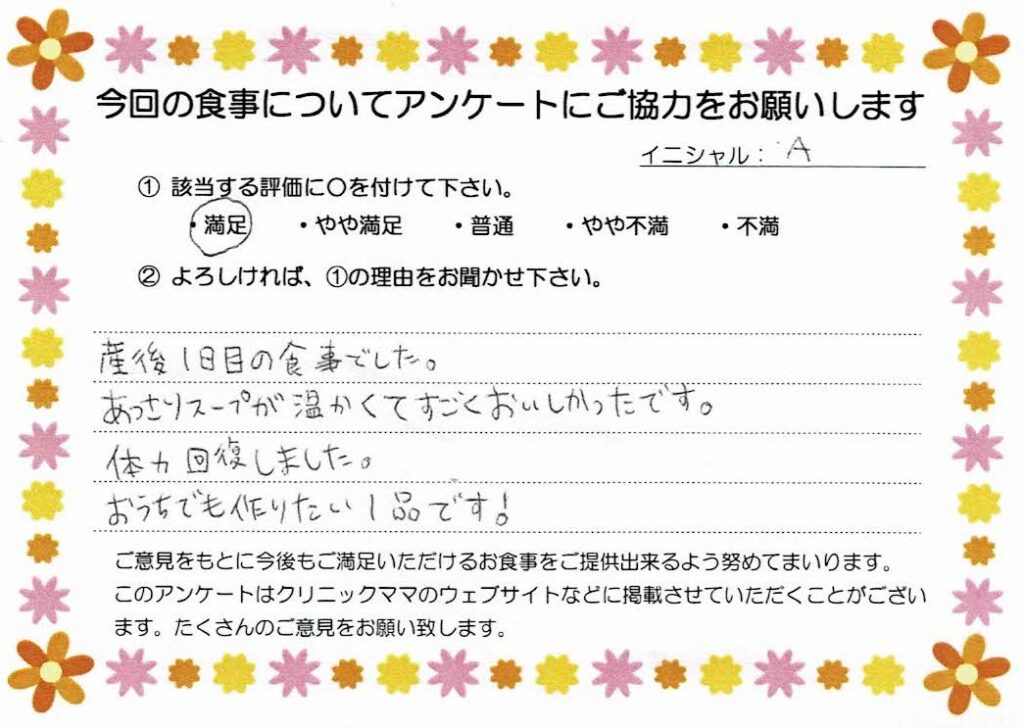 今回の食事についてアンケートにご協力をお願いします
イニシャル： A
① 該当する評価に〇を付けて下さい。
・満足 ・やや満足 ・普通 ・やや不満 ・不満
② よろしければ、①の理由をお聞かせ下さい。
産後1日目の食事でした。
あっさりスープが温かくてすごくおいしかったです。
体力回復しました。
おうちでも作りたい1品です!
ご意見をもとに今後もご満足いただけるお食事をご提供出来るよう努めてまいります。
このアンケートはクリニックママのウェブサイトなどに掲載させていただくことがござい
ます。たくさんのご意見をお願い致します。